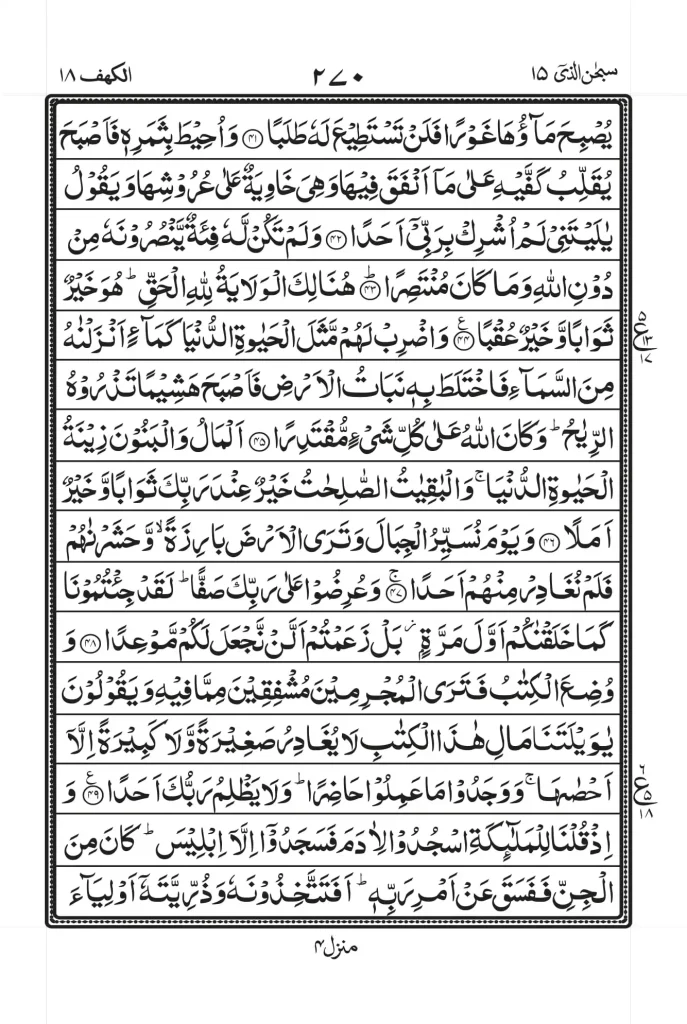 سبحٰن الذیٓ ۱۵
۲۷۰
الکهف ۱۸
یُصْبِحَ مَآؤُهَا غَوْرًا فَلَنْ تَسْتَطِیْعَ لَهٗ طَلَبًا ﴿۴۱﴾ وَاُحِیْطَ بِثَمَرِهٖ فَاَصْبَحَ
یُقَلِّبُ کَفَّیْهِ عَلٰی مَآ اَنْفَقَ فِیْهَا وَهِیَ خَاوِیَةٌ عَلٰی عُرُوْشِهَا وَیَقُوْلُ
یٰلَیْتَنِیْ لَمْ اُشْرِكْ بِرَبِّیْٓ اَحَدًا ﴿۴۲﴾ وَلَمْ تَکُنْ لَّهٗ فِئَةٌ یَّنْصُرُوْنَهٗ مِنْ
دُوْنِ اللّٰهِ وَمَا کَانَ مُنْتَصِرًا ﴿۴۳﴾ؕ هُنَالِكَ الْوَلَایَةُ لِلّٰهِ الْحَقِّ ؕ هُوَ خَیْرٌ
ثَوَابًا وَّخَیْرٌ عُقْبًا ﴿۴۴﴾ع وَاضْرِبْ لَهُمْ مَّثَلَ الْحَیٰوةِ الدُّنْیَا کَمَآءٍ اَنْزَلْنٰهُ
ع ۵ ۱۳ ۱۷
مِنَ السَّمَآءِ فَاخْتَلَطَ بِهٖ نَبَاتُ الْاَرْضِ فَاَصْبَحَ هَشِیْمًا تَذْرُوْهُ
الرِّیٰحُ ؕ وَکَانَ اللّٰهُ عَلٰی کُلِّ شَیْءٍ مُّقْتَدِرًا ﴿۴۵﴾ اَلْمَالُ وَالْبَنُوْنَ زِیْنَةُ
الْحَیٰوةِ الدُّنْیَا ۚ وَالْبٰقِیٰتُ الصّٰلِحٰتُ خَیْرٌ عِنْدَ رَبِّكَ ثَوَابًا وَّخَیْرٌ
اَمَلًا ﴿۴۶﴾ وَیَوْمَ نُسَیِّرُ الْجِبَالَ وَتَرَی الْاَرْضَ بَارِزَةً ۙ وَّحَشَرْنٰهُمْ
فَلَمْ نُغَادِرْ مِنْهُمْ اَحَدًا ﴿۴۷﴾ۚ وَعُرِضُوْا عَلٰی رَبِّكَ صَفًّا ؕ لَقَدْ جِئْتُمُوْنَا
کَمَا خَلَقْنٰکُمْ اَوَّلَ مَرَّةٍۭ ؗ بَلْ زَعَمْتُمْ اَلَّنْ نَّجْعَلَ لَکُمْ مَّوْعِدًا ﴿۴۸﴾ وَ
وُضِعَ الْکِتٰبُ فَتَرَی الْمُجْرِمِیْنَ مُشْفِقِیْنَ مِمَّا فِیْهِ وَیَقُوْلُوْنَ
یٰوَیْلَتَنَا مَالِ هٰذَا الْکِتٰبِ لَا یُغَادِرُ صَغِیْرَةً وَّلَا کَبِیْرَةً اِلَّآ
اَحْصٰىهَا ۚ وَوَجَدُوْا مَا عَمِلُوْا حَاضِرًا ؕ وَلَا یَظْلِمُ رَبُّكَ اَحَدًا ﴿۴۹﴾ع وَ
ع ۶ ۵ ۱۸
اِذْ قُلْنَا لِلْمَلٰٓئِکَةِ اسْجُدُوْا لِاٰدَمَ فَسَجَدُوْٓا اِلَّآ اِبْلِیْسَ ؕ کَانَ مِنَ
الْجِنِّ فَفَسَقَ عَنْ اَمْرِ رَبِّهٖ ؕ اَفَتَتَّخِذُوْنَهٗ وَذُرِّیَّتَهٗٓ اَوْلِیَآءَ
منزل ۴